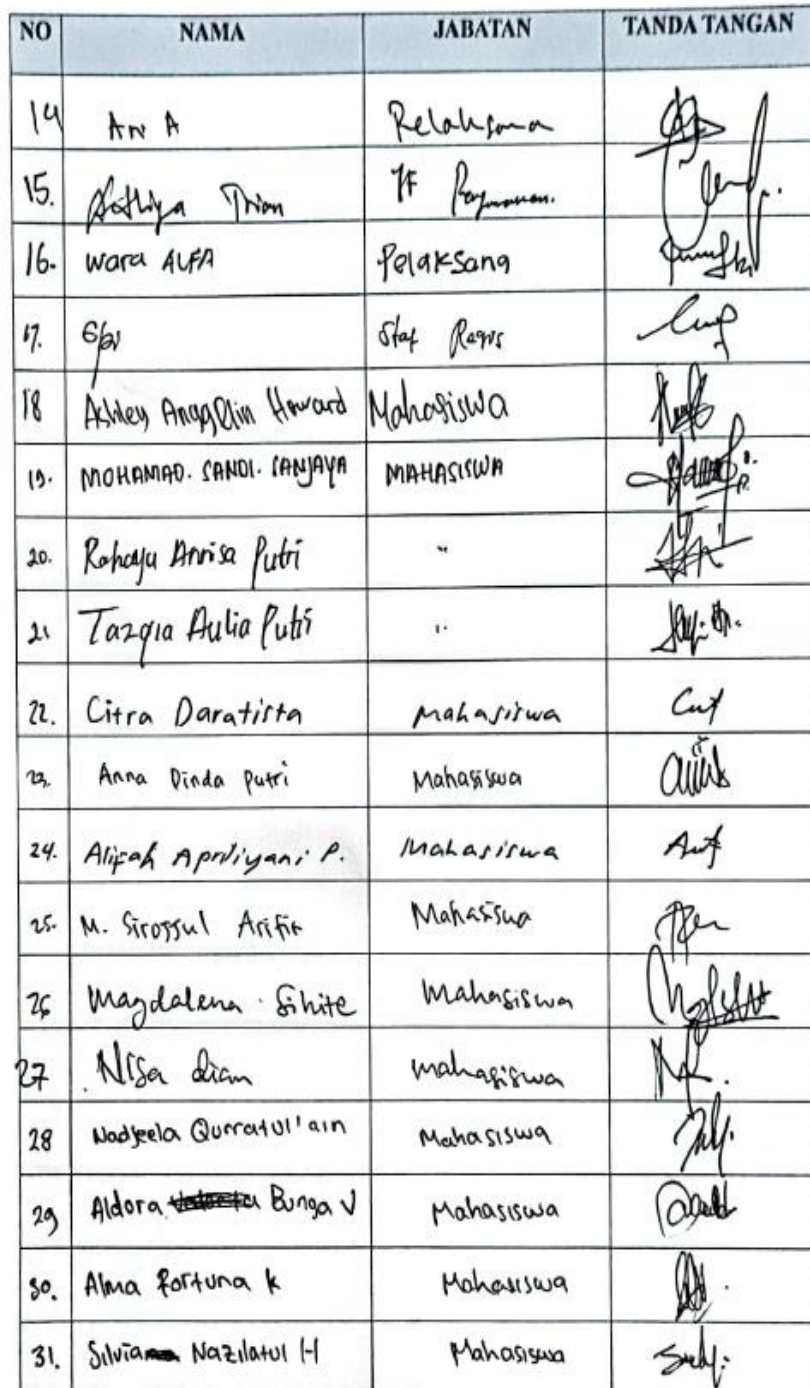 NO NAMA JABATAN TANDA TANGAN
14 Ari A Pelaksana
15. Trian JF
16. Wara ALFA Pelaksana
17. Staf
18 Ashley Anggelin Howard Mahasiswa
19. MOHAMAD. SANDI. SANJAYA MAHASISWA
20. Rahayu Annisa Putri "
21 Tazqia Aulia Putri "
22. Citra Daratista Mahasiswa
23. Anna Dinda Putri Mahasiswa
24. Alifah Apriliyani P. Mahasiswa
25. M. Sirossul Arifin Mahasiswa
26 Magdalena Sihite Mahasiswa
27 Nisa dian Mahasiswa
28 Nadjeela Qurratul'ain Mahasiswa
29 Aldora Bunga V Mahasiswa
30. Alma Fortuna K Mahasiswa
31. Silvia Nazilatul H Mahasiswa